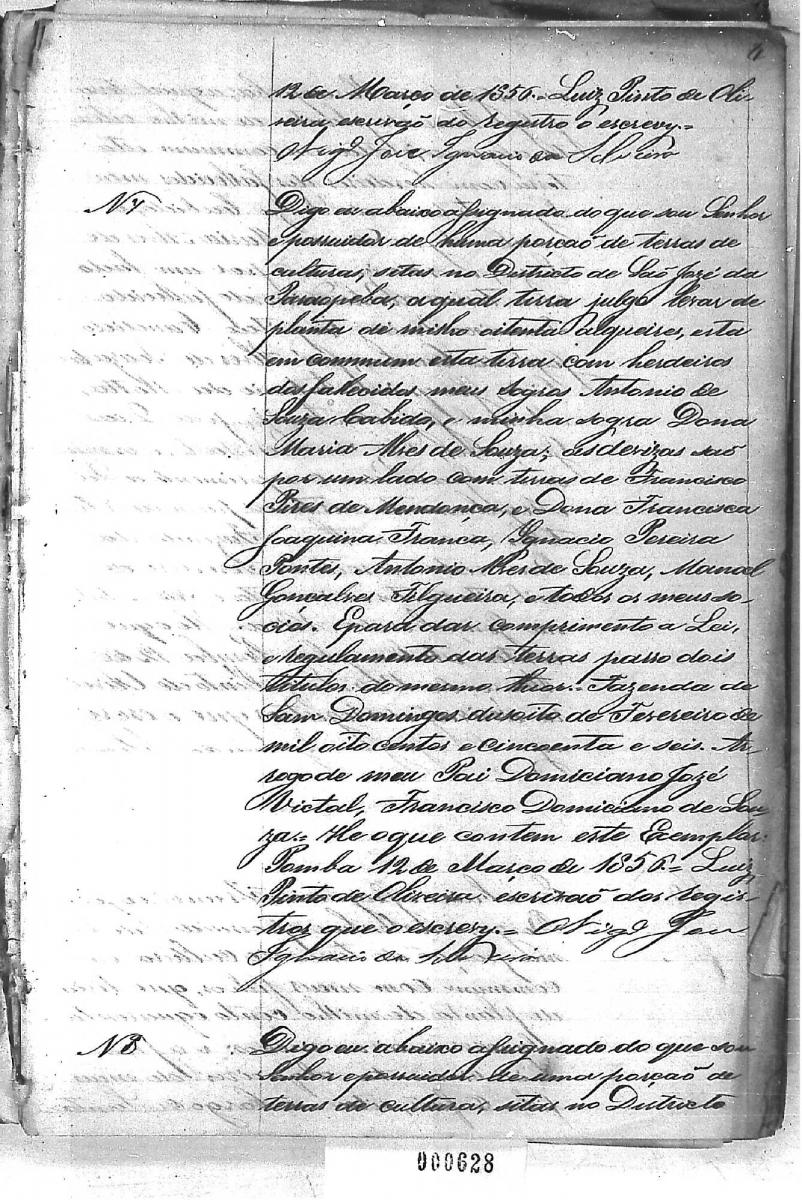 12 de Março de 1856.= Luiz Pinto de Oli-
veira escrivaõ do registro o escrevy.=
O Vigº Joze Ignacio da Silveira
N 7
Digo eu abaixo assignado do que sou Senhor
e possuidor de huma porçaõ de terras de
culturas, sitas no Districto de Saõ Jozé da
Paraopeba, a qual terra julgo levar de
planta de milho oitenta alqueires, esta
em commum esta terra com herdeiros
dos falecidos meus sogros Antonio de
Souza Cabido, e minha sogra Dona
Maria Alves de Souza; as devizas saõ
por um lado com terras de Francisco
Pires de Mendonça, e Dona Francisca
Joaquina França, Ignacio Pereira
Pontes, Antonio Alves de Souza, Manoel
Goncalves Filgueira, e todos os meus so-
ciós. E para dar comprimento a Lei,
e regulamento das terras passo dois
titulos do mesmo theor.= Fazenda de
Sam Domingos dusoito de Fevereiro de
mil oito centos e cincoenta e seis. Ar-
rogo de meu Pai Domiciano Jozé
Victal, Francisco Domiciano de Sou-
za.= He o que contem este Exemplar.
Pomba 12 de Março de 1856.= Luiz
Pinto de Oliveira escrivaõ dos regis-
tros que o escrevy.= O Vigº Joze
Ignacio da Silveira
N 8
Digo eu abaixo assignado do que sou
Senhor e possuidor de uma porçaõ de
terras de cultura, sitas no Districto
000628